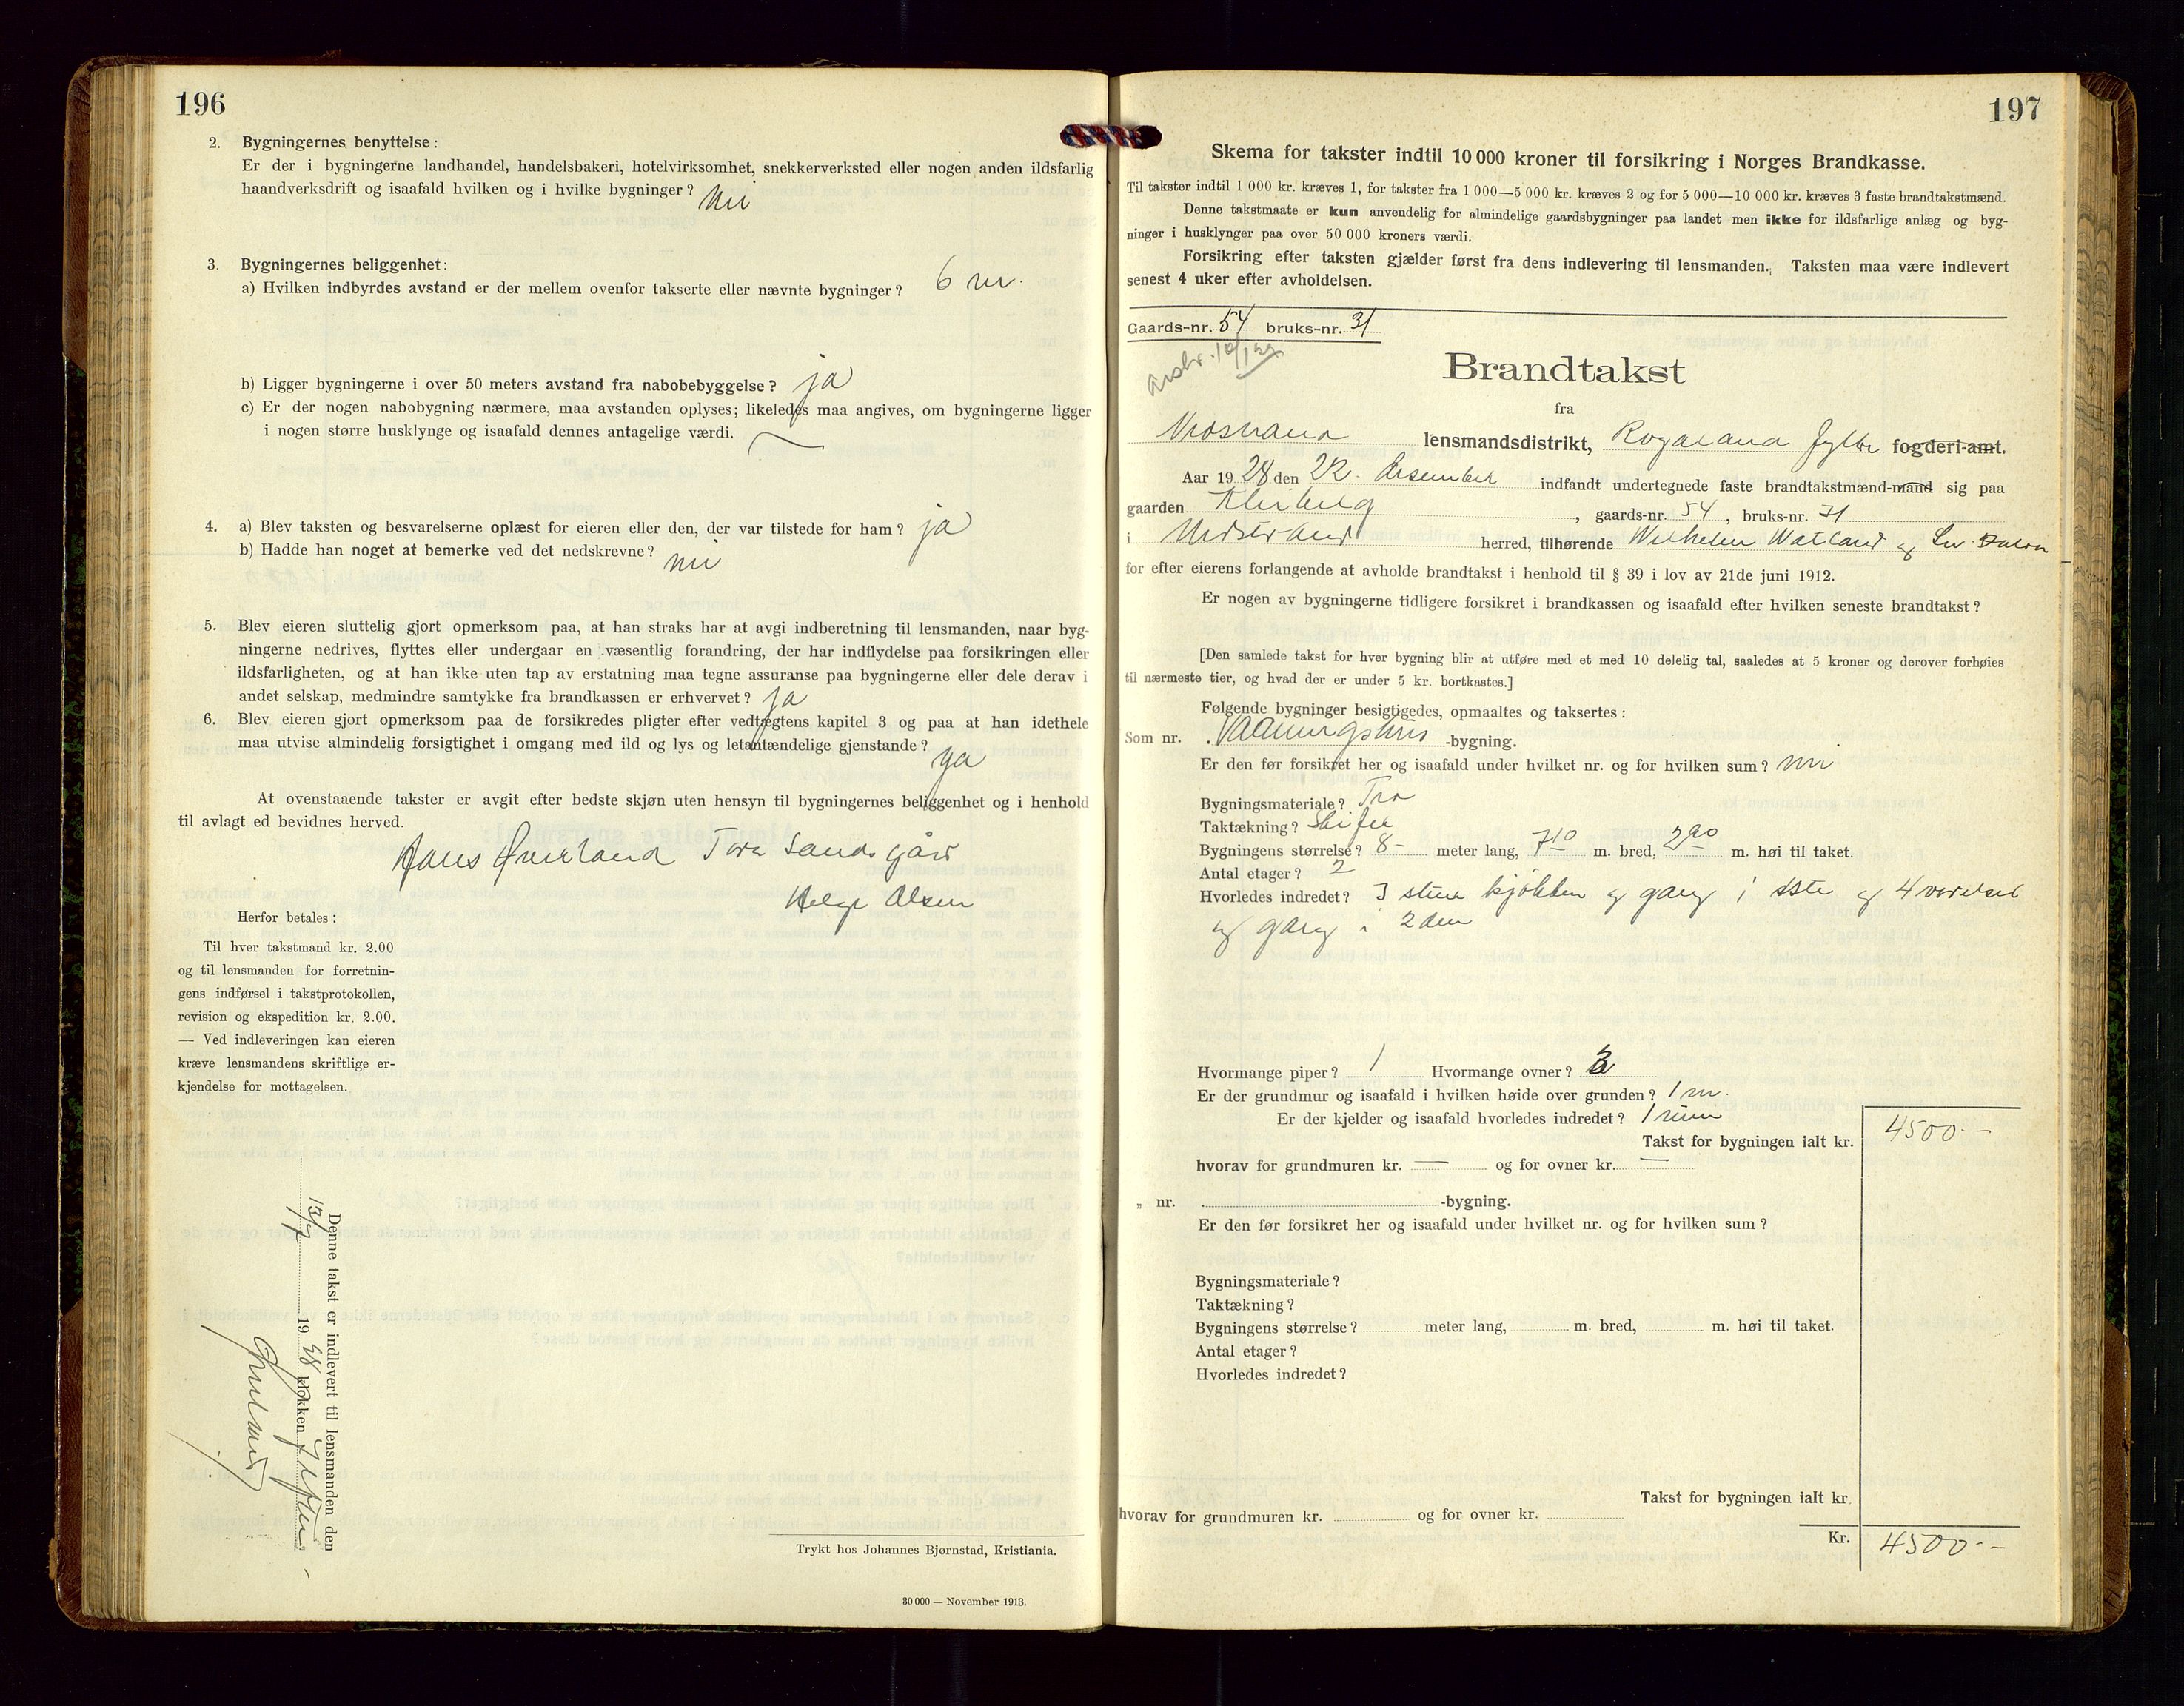 196
2. Bygningernes benyttelse:
Er der i bygningerne landhandel, handelsbakeri, hotelvirksomhet, snekkerverksted eller nogen anden ildsfarlig
haandverksdrift og isaafald hvilken og i hvilke bygninger? nei
3. Bygningernes beliggenhet:
a) Hvilken indbyrdes avstand er der mellem ovenfor takserte eller nævnte bygninger? 6 m.
b) Ligger bygningerne i over 50 meters avstand fra nabobebyggelse? ja
c) Er der nogen nabobygning nærmere, maa avstanden oplyses; likeledes maa angives, om bygningerne ligger
i nogen større husklynge og isaafald dennes antagelige værdi.
4. a) Blev taksten og besvarelserne oplæst for eieren eller den, der var tilstede for ham? ja
b) Hadde han noget at bemerke ved det nedskrevne? nei
5. Blev eieren sluttelig gjort opmerksom paa, at han straks har at avgi indberetning til lensmanden, naar byg-
ningerne nedrives, flyttes eller undergaar en væsentlig forandring, der har indflydelse paa forsikringen eller
ildsfarligheten, og at han ikke uten tap av erstatning maa tegne assuranse paa bygningerne eller dele derav i
andet selskap, medmindre samtykke fra brandkassen er erhvervet? ja
6. Blev eieren gjort opmerksom paa de forsikredes pligter efter vedtægtens kapitel 3 og paa at han idethele
maa utvise almindelig forsigtighet i omgang med ild og lys og letantændelige gjenstande? ja
At ovenstaaende takster er avgit efter bedste skjøn uten hensyn til bygningernes beliggenhet og i henhold
til avlagt ed bevidnes herved.
Hans Øverland Tore Sandsgård
Helge Olsen
Herfor betales:
Til hver takstmand kr. 2.00
og til lensmanden for forretnin-
gens indførsel i takstprotokollen,
revision og ekspedition kr. 2.00.
— Ved indleveringen kan eieren
kræve lensmandens skriftlige er-
kjendelse for mottagelsen.
Denne takst er indlevert til lensmanden den
19 klokken
Trykt hos Johannes Bjørnstad, Kristiania.
30 000 — November 1913.
197
Skema for takster indtil 10 000 kroner til forsikring i Norges Brandkasse.
Til takster indtil 1 000 kr. kræves 1, for takster fra 1 000—5 000 kr. kræves 2 og for 5 000—10 000 kr. kræves 3 faste brandtakstmænd.
Denne takstmaate er kun anvendelig for almindelige gaardsbygninger paa landet men ikke for ildsfarlige anlæg og byg-
ninger i husklynger paa over 50 000 kroners værdi.
Forsikring efter taksten gjælder først fra dens indlevering til lensmanden. Taksten maa være indlevert
senest 4 uker efter avholdelsen.
Gaards-nr. 54 bruks-nr. 31
Brandtakst
fra
lensmandsdistrikt, Rogaland fylke fogderi-amt.
Aar 1928 den 22. desember indfandt undertegnede faste brandtakstmænd-mand sig paa
gaarden , gaards-nr. 54, bruks-nr. 31
i Nedstrand herred, tilhørende Wilhelm Watland og
for efter eierens forlangende at avholde brandtakst i henhold til § 39 i lov av 21de juni 1912.
Er nogen av bygningerne tidligere forsikret i brandkassen og isaafald efter hvilken seneste brandtakst?
[Den samlede takst for hver bygning blir at utføre med et med 10 delelig tal, saaledes at 5 kroner og derover forhøies
til nærmeste tier, og hvad der er under 5 kr. bortkastes.]
Følgende bygninger besigtigedes, opmaaltes og taksertes:
Som nr. Vaaningshus -bygning.
Er den før forsikret her og isaafald under hvilket nr. og for hvilken sum? nei
Bygningsmateriale? Træ
Taktækning? Skifer
Bygningens størrelse? 8- meter lang, 7 40 m. bred, 2 90 m. høi til taket.
Antal etager? 2
Hvorledes indredet? 3 stuer kjøkken og gang i 1ste og 4 værelser
og gang i 2den
Hvormange piper? 1 Hvormange ovner? 3
Er der grundmur og isaafald i hvilken høide over grunden? 1 m.
Er der kjelder og isaafald hvorledes indredet? 1 rum
Takst for bygningen ialt kr. 4500.-
hvorav for grundmuren kr. — og for ovner kr. —
„ nr. -bygning.
Er den før forsikret her og isaafald under hvilket nr. og for hvilken sum?
Bygningsmateriale?
Taktækning?
Bygningens størrelse? meter lang, m. bred, m. høi til taket.
Antal etager?
Hvorledes indredet?
Takst for bygningen ialt kr.
hvorav for grundmuren kr. og for ovner kr.
Kr. 4500.-